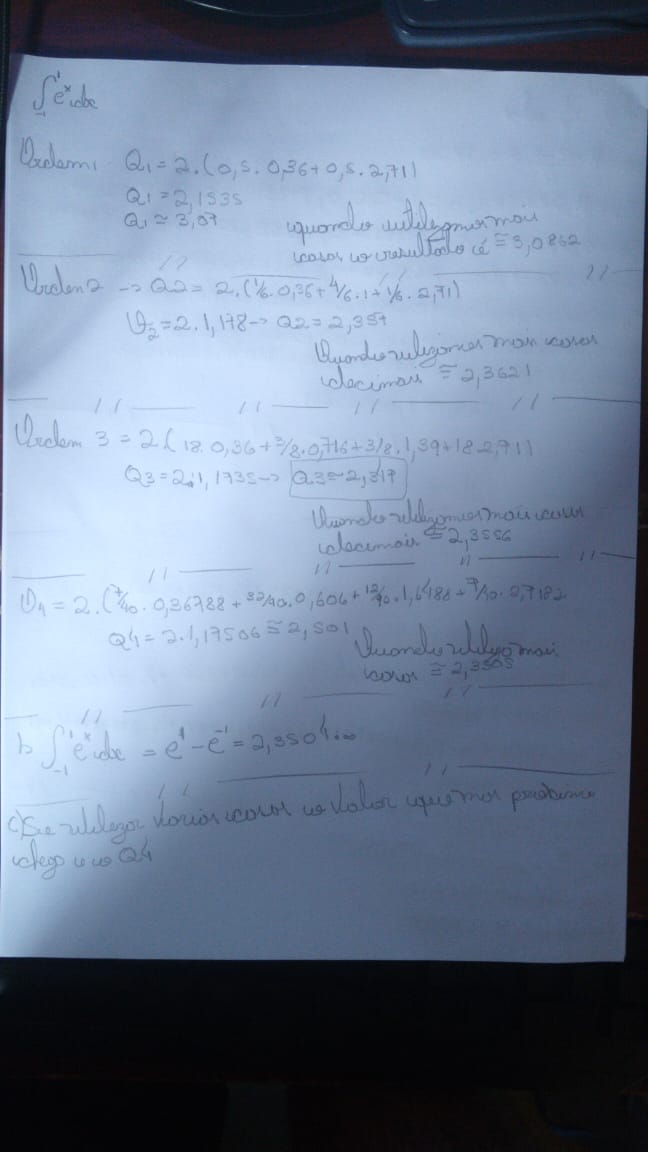 ∫₋₁¹ eˣ dx
Ordem 1 Q₁ = 2.(0,5. 0,36 + 0,5. 2,71)
Q₁ = 2,1535
Q₁ ≃ 3,07
quando utilizamos mais
casas o resultado é ≅ 3,0862
Orden 2 -> Q2 = 2.(1/6. 0,36 + 4/6. 1 + 1/6. 2,71)
2 = 2. 1,178 -> Q2 = 2,357
Quando utilizamos mais casas
decimais ≅ 2,3621
Ordem 3 = 2.( 18. 0,36 + 3/8. 0,716 + 3/8. 1,39 + 18 2,71)
Q3 = 2. 1,1735 -> Q3 ≃ 2,347
Quando utilizamos mais casas
decimais ≅ 2,3556
4 = 2.(7/90. 0,36788 + 32/90. 0,606 + 12/90. 1,6488 + 7/90. 2,7182
Q4 = 2. 1,17506 ≅ 2,501
Quando utilizo mais
casas ≅ 2,3505
b ∫₋₁¹ eˣ dx = e¹ - e⁻¹ = 2,3504...
c) Se utilizar varias casas o valor que mas proximo
chego é o Q4